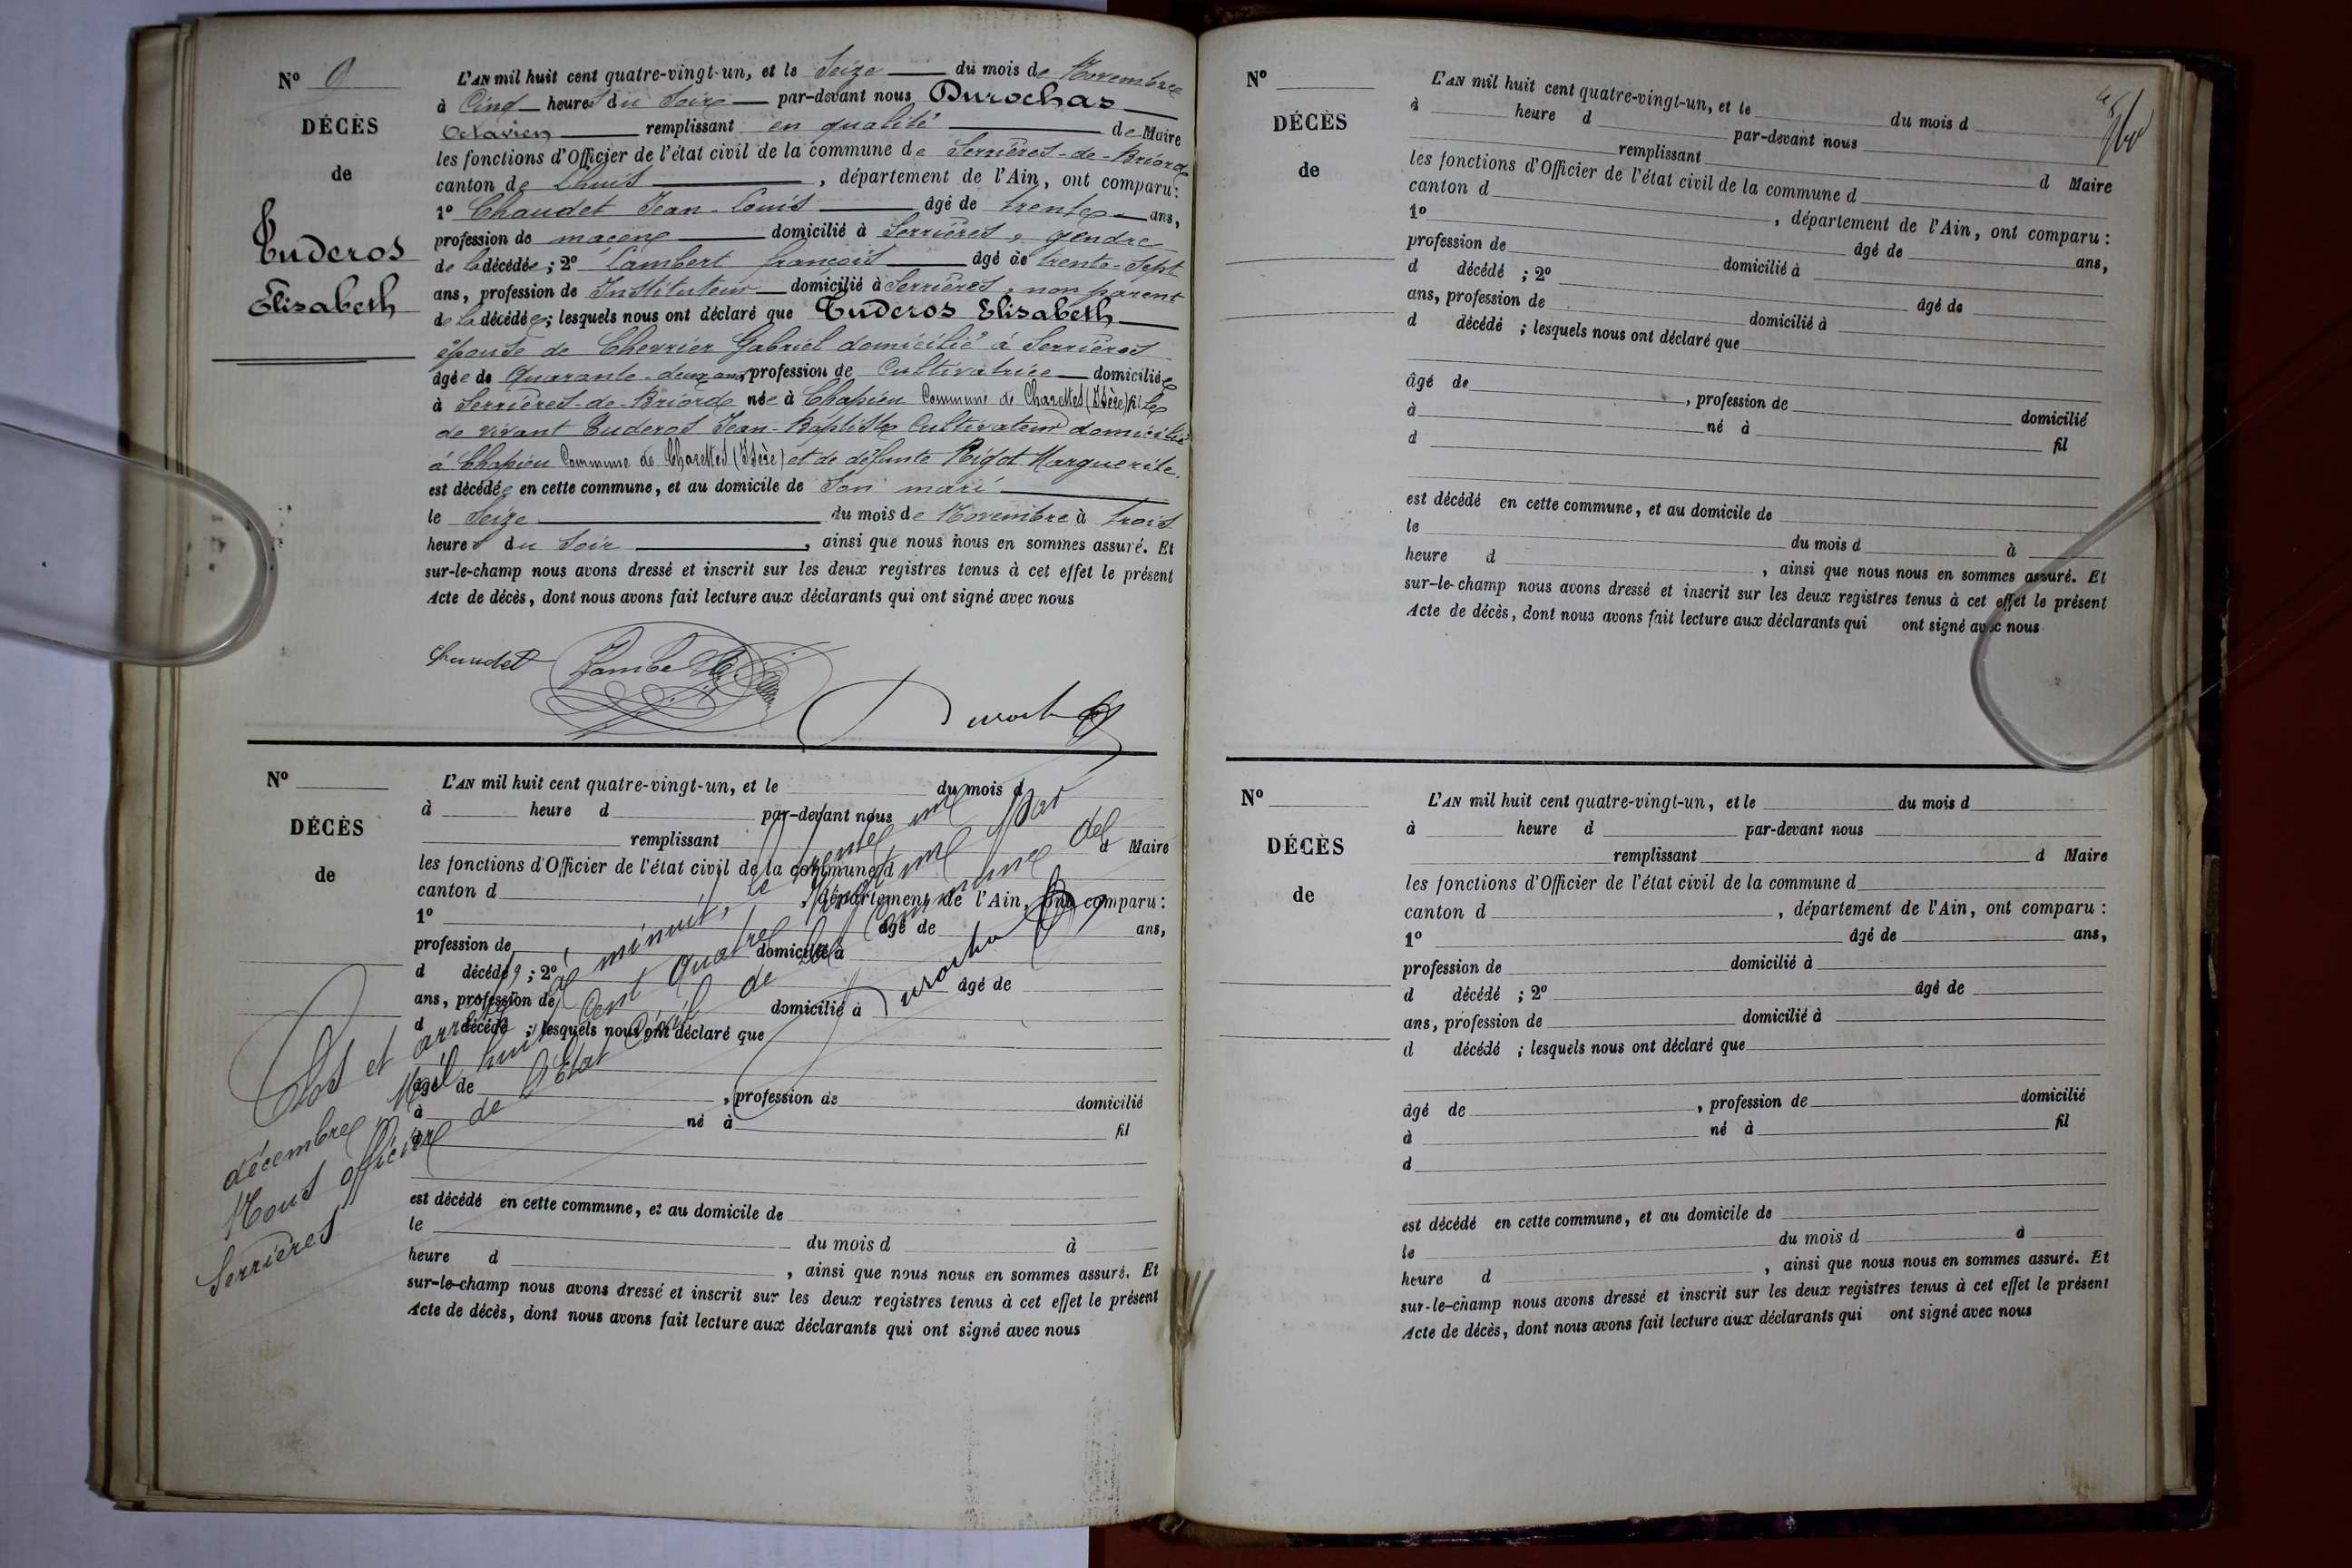 Nº 9
DÉCÈS
de
Tuderos
Elisabeth
L'AN mil huit cent quatre-vingt-un, et le Seize du mois de Novembre
à Cinq heures du Soir par-devant nous Durochas
Octavien remplissant en qualité de Maire
les fonctions d'Officier de l'état civil de la commune de Serrières-de-Briord
canton de Lhuis, département de l'Ain, ont comparu :
1º Chaudet Jean-Louis âgé de trente ans,
profession de maçon domicilié à Serrières, gendre
de la décédée ; 2º Lambert françois âgé de trente-Sept
ans, profession de Instituteur domicilié à Serrières, non parent
de la décédée ; lesquels nous ont déclaré que Tuderos Elisabeth
épouse de Chevrier Gabriel domicilié à Serrières
âgée de Quarante-deux ans, profession de Cultivatrice domiciliée
à Serrières-de-Briord née à Chapieu Commune de Charettes (Isère) fille
de vivant Tuderos Jean-Baptiste Cultivateur domicilié
à Chapieu Commune de Charettes (Isère) et de défunte Rigot Marguerite.
est décédée en cette commune, et au domicile de Son mari
le Seize du mois de Novembre à trois
heures du Soir, ainsi que nous nous en sommes assuré. Et
sur-le-champ nous avons dressé et inscrit sur les deux registres tenus à cet effet le présent
Acte de décès, dont nous avons fait lecture aux déclarants qui ont signé avec nous
Chaudet Lambert
Durochas
Nº
DÉCÈS
de
L'AN mil huit cent quatre-vingt-un, et le du mois d
à heure d par-devant nous
remplissant d Maire
les fonctions d'Officier de l'état civil de la commune d
canton d , département de l'Ain, ont comparu :
1º âgé de ans,
profession de domicilié à
d décédé ; 2º âgé de
ans, profession de domicilié à
d décédé ; lesquels nous ont déclaré que
âgé de , profession de domicilié
à né à fil
d
est décédé en cette commune, et au domicile de
le du mois d à
heure d , ainsi que nous nous en sommes assuré. Et
sur-le-champ nous avons dressé et inscrit sur les deux registres tenus à cet effet le présent
Acte de décès, dont nous avons fait lecture aux déclarants qui ont signé avec nous
Clos et arrêté à minuit, le trente une
décembre Mil huit Cent Quatre Vingt une par
Nous officier de l'État Civil de la Commune de
Serrières
Durochas
Nº
DÉCÈS
de
L'AN mil huit cent quatre-vingt-un, et le du mois d
à heure d par-devant nous
remplissant d Maire
les fonctions d'Officier de l'état civil de la commune d
canton d , département de l'Ain, ont comparu :
1º âgé de ans,
profession de domicilié à
d décédé ; 2º âgé de
ans, profession de domicilié à
d décédé ; lesquels nous ont déclaré que
âgé de , profession de domicilié
à né à fil
d
est décédé en cette commune, et au domicile de
le du mois d à
heure d , ainsi que nous nous en sommes assuré. Et
sur-le-champ nous avons dressé et inscrit sur les deux registres tenus à cet effet le présent
Acte de décès, dont nous avons fait lecture aux déclarants qui ont signé avec nous
Nº
DÉCÈS
de
L'AN mil huit cent quatre-vingt-un, et le du mois d
à heure d par-devant nous
remplissant d Maire
les fonctions d'Officier de l'état civil de la commune d
canton d , département de l'Ain, ont comparu :
1º âgé de ans,
profession de domicilié à
d décédé ; 2º âgé de
ans, profession de domicilié à
d décédé ; lesquels nous ont déclaré que
âgé de , profession de domicilié
à né à fil
d
est décédé en cette commune, et au domicile de
le du mois d à
heure d , ainsi que nous nous en sommes assuré. Et
sur-le-champ nous avons dressé et inscrit sur les deux registres tenus à cet effet le présent
Acte de décès, dont nous avons fait lecture aux déclarants qui ont signé avec nous